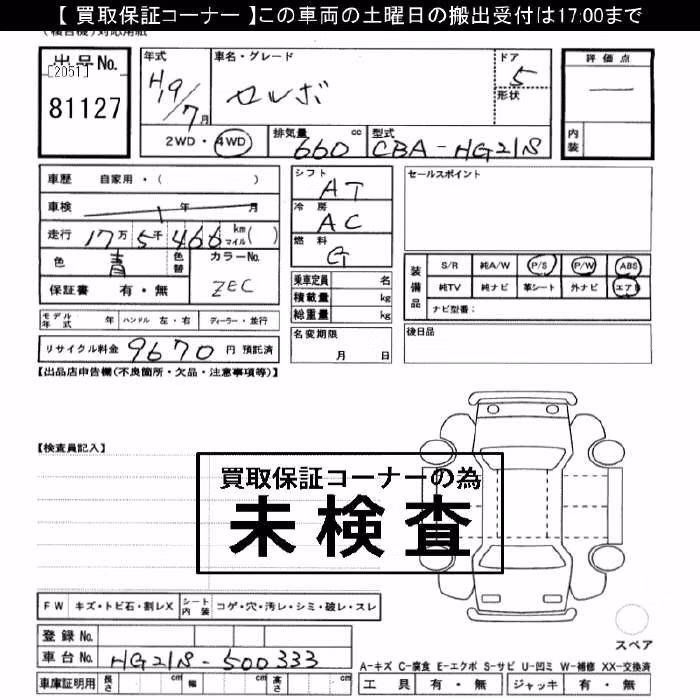 【 買取保証コーナー 】この車両の土曜日の搬出受付は17:00まで
出品No. [2051] 81127
年式 H19/7月
車名・グレード セルボ
ドア 5
形状
評価点 —
内装
2WD・4WD
排気量 660 cc
型式 CBA-HG21S
車歴 自家用・( )
車検 年 月
走行 17万5千466 km マイル( )
色 青 色替
カラーNo. ZEC
保証書 有・無
シフト AT
冷房 AC
燃料 G
乗車定員 名
積載量 kg
総重量 kg
セールスポイント
装備品
S/R 純A/W P/S P/W ABS
純TV 純ナビ 革シート 外ナビ エアB
ナビ型番:
モデル年式 年 ハンドル 左・右 ディーラー・並行
名変期限 月 日
後日品
リサイクル料金 9670 円 預託済
【出品店申告欄(不良箇所・欠品・注意事項等)】
【検査員記入】
買取保証コーナーの為
未検査
FW キズ・トビ石・割レX シート内装 コゲ・穴・汚レ・シミ・破レ・スレ
スペア
登録No.
車台No. HG21S-500333
A-キズ C-腐食 E-エクボ S-サビ U-凹ミ W-補修 XX-交換済
車庫証明用 長さ cm 幅 cm 高さ cm
工具 有・無 ジャッキ 有・無